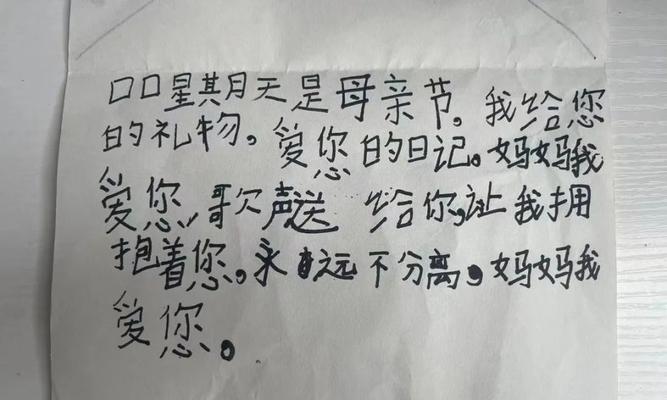 口口星期天是母亲节。我给您
的礼物。爱您的日记。妈妈我
爱您,歌声送 给你,让我拥
抱着您。永远不分离。妈妈我
爱您。